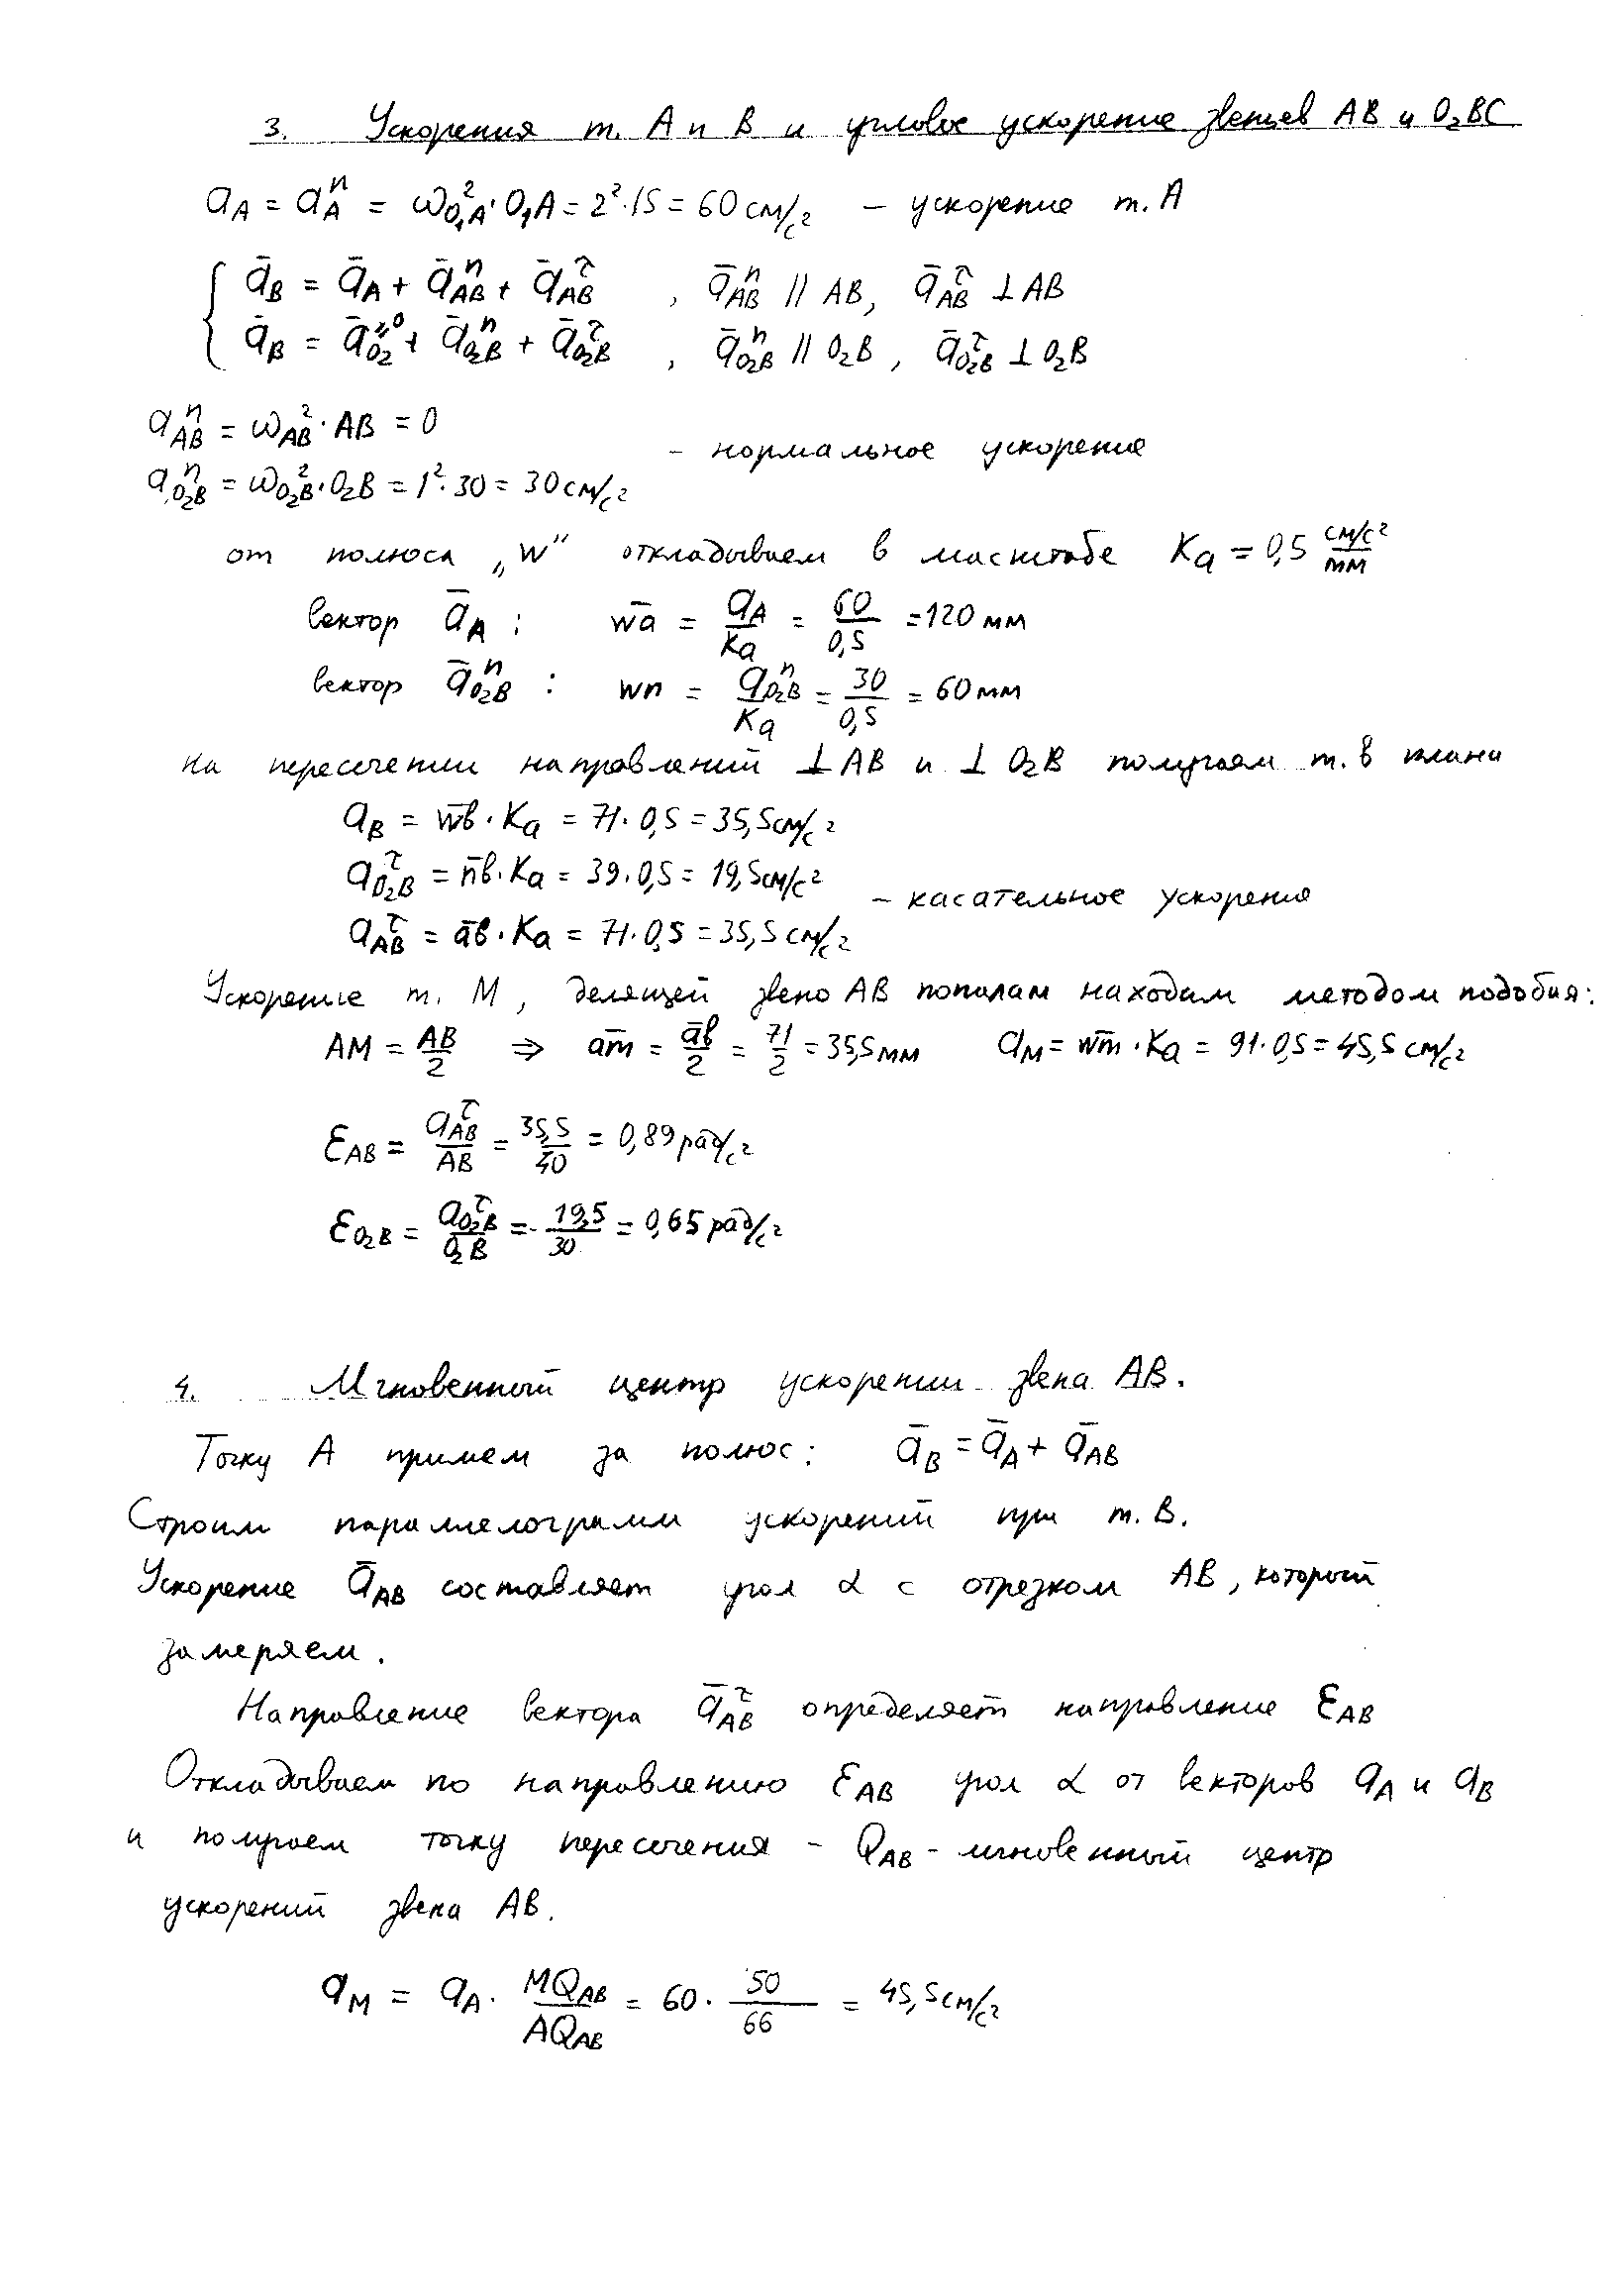 3. Ускорения т. A и B и угловое ускорение звеньев AB и O₂BC
a_A = a_A^n = ω_{O₁A}² · O₁A = 2² · 15 = 60 см/с² – ускорение т. A
ā_B = ā_A + ā_{AB}^n + ā_{AB}^τ , ā_{AB}^n || AB, ā_{AB}^τ ⊥ AB
ā_B = ā_{O₂}^{=0} + ā_{O₂B}^n + ā_{O₂B}^τ , ā_{O₂B}^n || O₂B, ā_{O₂B}^τ ⊥ O₂B
a_{AB}^n = ω_{AB}² · AB = 0
– нормальное ускорение
a_{O₂B}^n = ω_{O₂B}² · O₂B = 1² · 30 = 30 см/с²
от полюса „w” откладываем в масштабе K_a = 0,5 см/с²/мм
вектор ā_A : w̄a = a_A/K_a = 60/0,5 = 120 мм
вектор ā_{O₂B}^n : wn = a_{O₂B}^n/K_a = 30/0,5 = 60 мм
на пересечении направлений ⊥ AB и ⊥ O₂B получаем т. в плана
a_B = w̄в · K_a = 71 · 0,5 = 35,5 см/с²
a_{O₂B}^τ = n̄в · K_a = 39 · 0,5 = 19,5 см/с²
– касательное ускорения
a_{AB}^τ = āв · K_a = 71 · 0,5 = 35,5 см/с²
Ускорение т. M, делящей звено AB пополам находим методом подобия:
AM = AB/2 ⇒ ām = āв/2 = 71/2 = 35,5 мм a_M = w̄m · K_a = 91 · 0,5 = 45,5 см/с²
ε_{AB} = a_{AB}^τ/AB = 35,5/40 = 0,89 рад/с²
ε_{O₂B} = a_{O₂B}^τ/O₂B = 19,5/30 = 0,65 рад/с²
4. Мгновенный центр ускорении звена AB.
Точку A примем за полюс: ā_B = ā_A + ā_{AB}
Строим параллелограмм ускорений при т. B.
Ускорение ā_{AB} составляет угол α с отрезком AB, который
замеряем.
Направление вектора ā_{AB}^τ определяет направление ε_{AB}
Откладываем по направлению ε_{AB} угол α от векторов a_A и a_B
и получаем точку пересечения – Q_{AB} – мгновенный центр
ускорений звена AB.
a_M = a_A · MQ_{AB}/AQ_{AB} = 60 · 50/66 = 45,5 см/с²